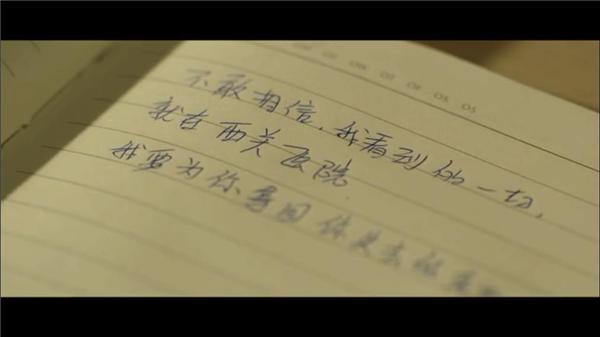 不敢相信,我看到的一切,
就在西关医院
我要为你寻回你失去的